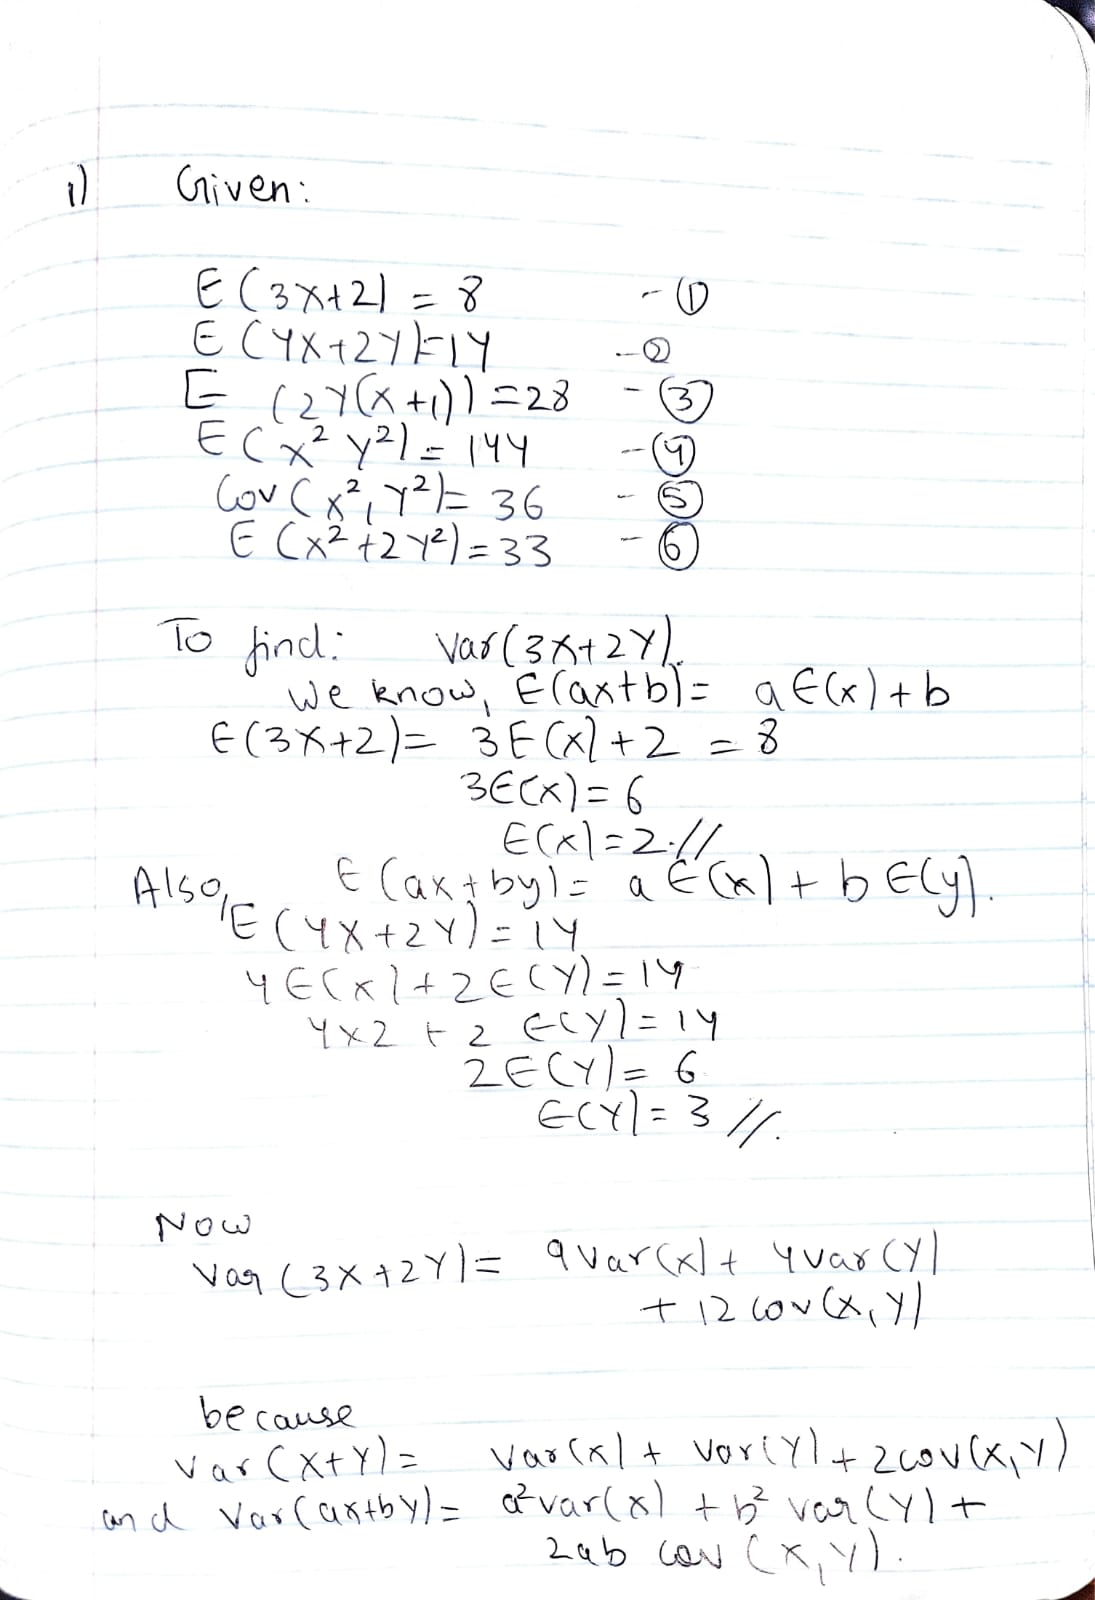 1) Given:
E(3X+2) = 8 - ①
E(4X+2Y)=14 - ②
E (2Y(X+1))=28 - ③
E(X² Y²) = 144 - ④
Cov(X², Y²)= 36 - ⑤
E(X²+2Y²)=33 - ⑥
To find: Var(3X+2Y).
We know, E(ax+b)= aE(x)+b
E(3X+2)= 3E(X)+2 = 8
3E(X)= 6
E(X)=2.//
Also, E(ax+by)= a E(x) + b E(y).
E(4X+2Y)=14
4E(X)+2E(Y)=14
4×2 + 2 E(Y)=14
2E(Y)= 6
E(Y)= 3 //.
Now
Var(3X+2Y)= 9Var(X)+ 4Var(Y)
+ 12 Cov(X,Y)
because
Var(X+Y)= Var(X)+ Var(Y)+2Cov(X,Y)
and Var(ax+bY)= a²var(x) + b² var(Y)+
2ab cov (X,Y).